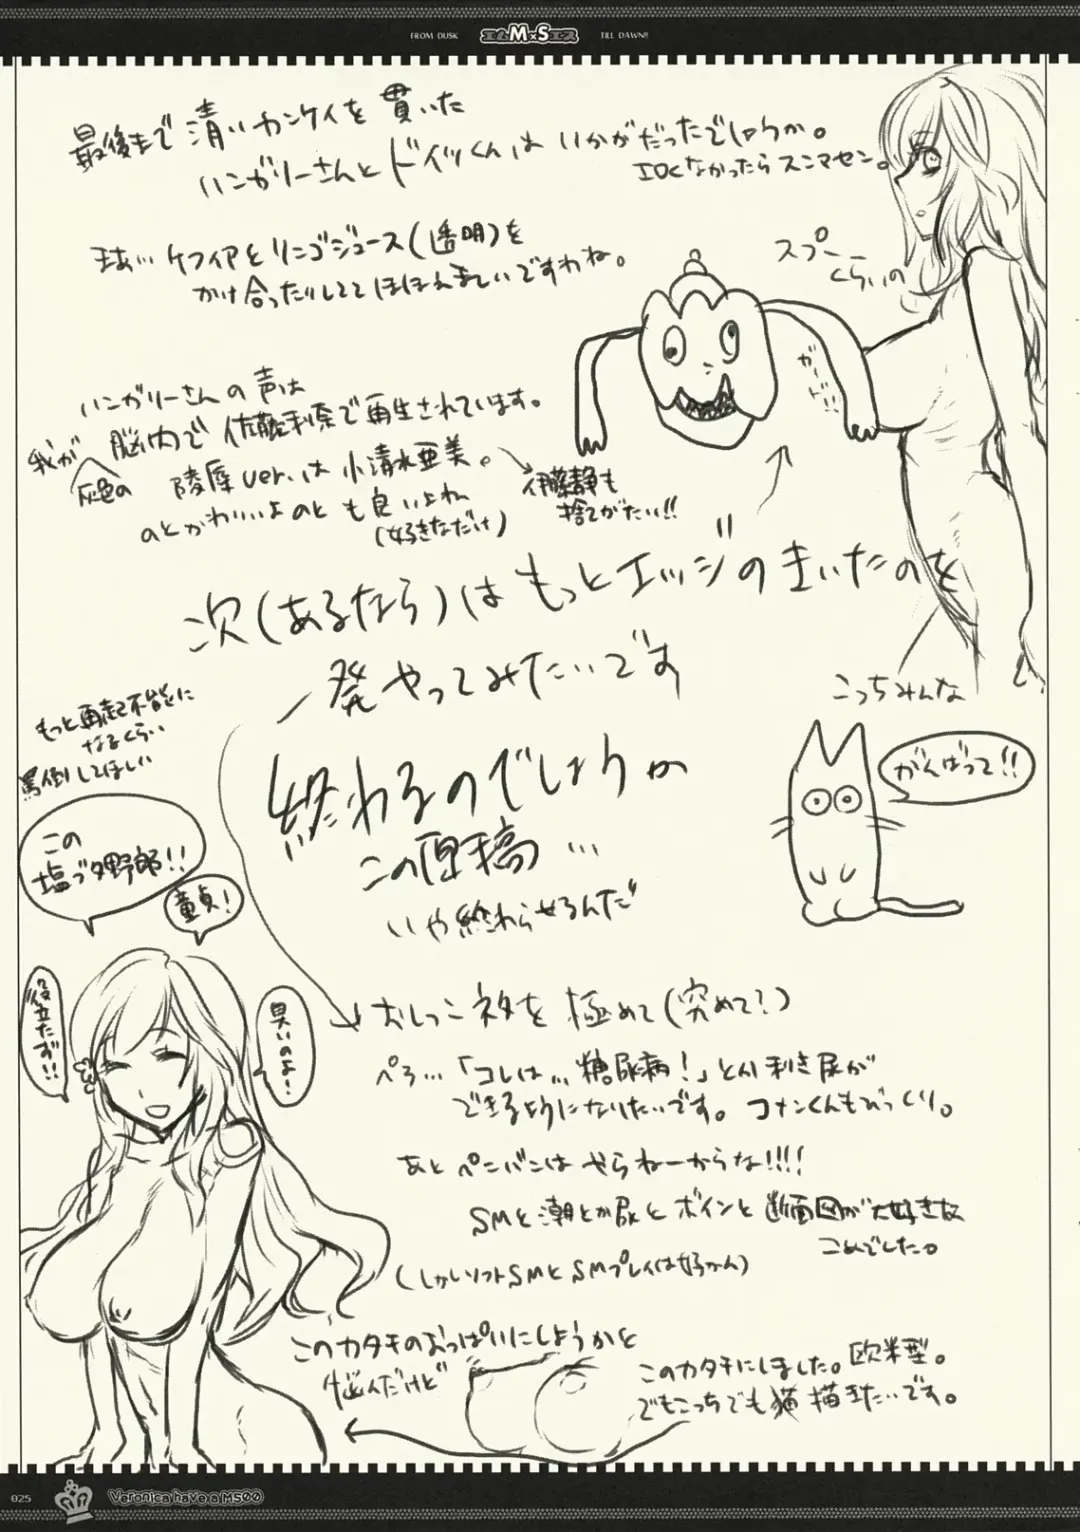 FROM DUSK
エムM×Sエス
TILL DAWN!!
最後まで清いカンケイを貫いた
ハンガリーさんとドイツくんはいかがだったでしょうか。
エロくなかったらスンマセン。
まあ…ケフィアとリンゴジュース(透明)を
かけ合ったりしててほほえましいですわね。
スプー
くらいの
ハンガリーさんの声は
我が
灰色の
脳内で佐藤利奈で再生されています。
陵辱ver.は小清水亜美。
のとかわいいよのとも良いよね
(好きなだけ)
伊藤静も
捨てがたい!!
次(あるなら)はもっとエッジのきいたのを
一発やってみたいです
もっと再起不能に
なるくらい
罵倒してほしい
終わるのでしょうか
この原稿…
いや終わらせるんだ
こっちみんな
がんばって!!
この
塩ブタ野郎!!
童貞!
役立たず!!
臭いのよ!
おしっこネタを極めて(究めて?)
ペろ…「コレは…糖尿病!」とか利き尿が
できるようになりたいです。コナンくんもびっくり。
あとペニバンはやらねーからな!!!!
SMと潮とか尿とボインと断面図が大好きな
こめでした。
(しかしソフトSMとSMプレイは好かん)
このカタチのおっぱいにしようかを
悩んだけど
このカタチにしました。欧米型。
でもこっちでも猫描きたいです。
025
Veronica have a M500